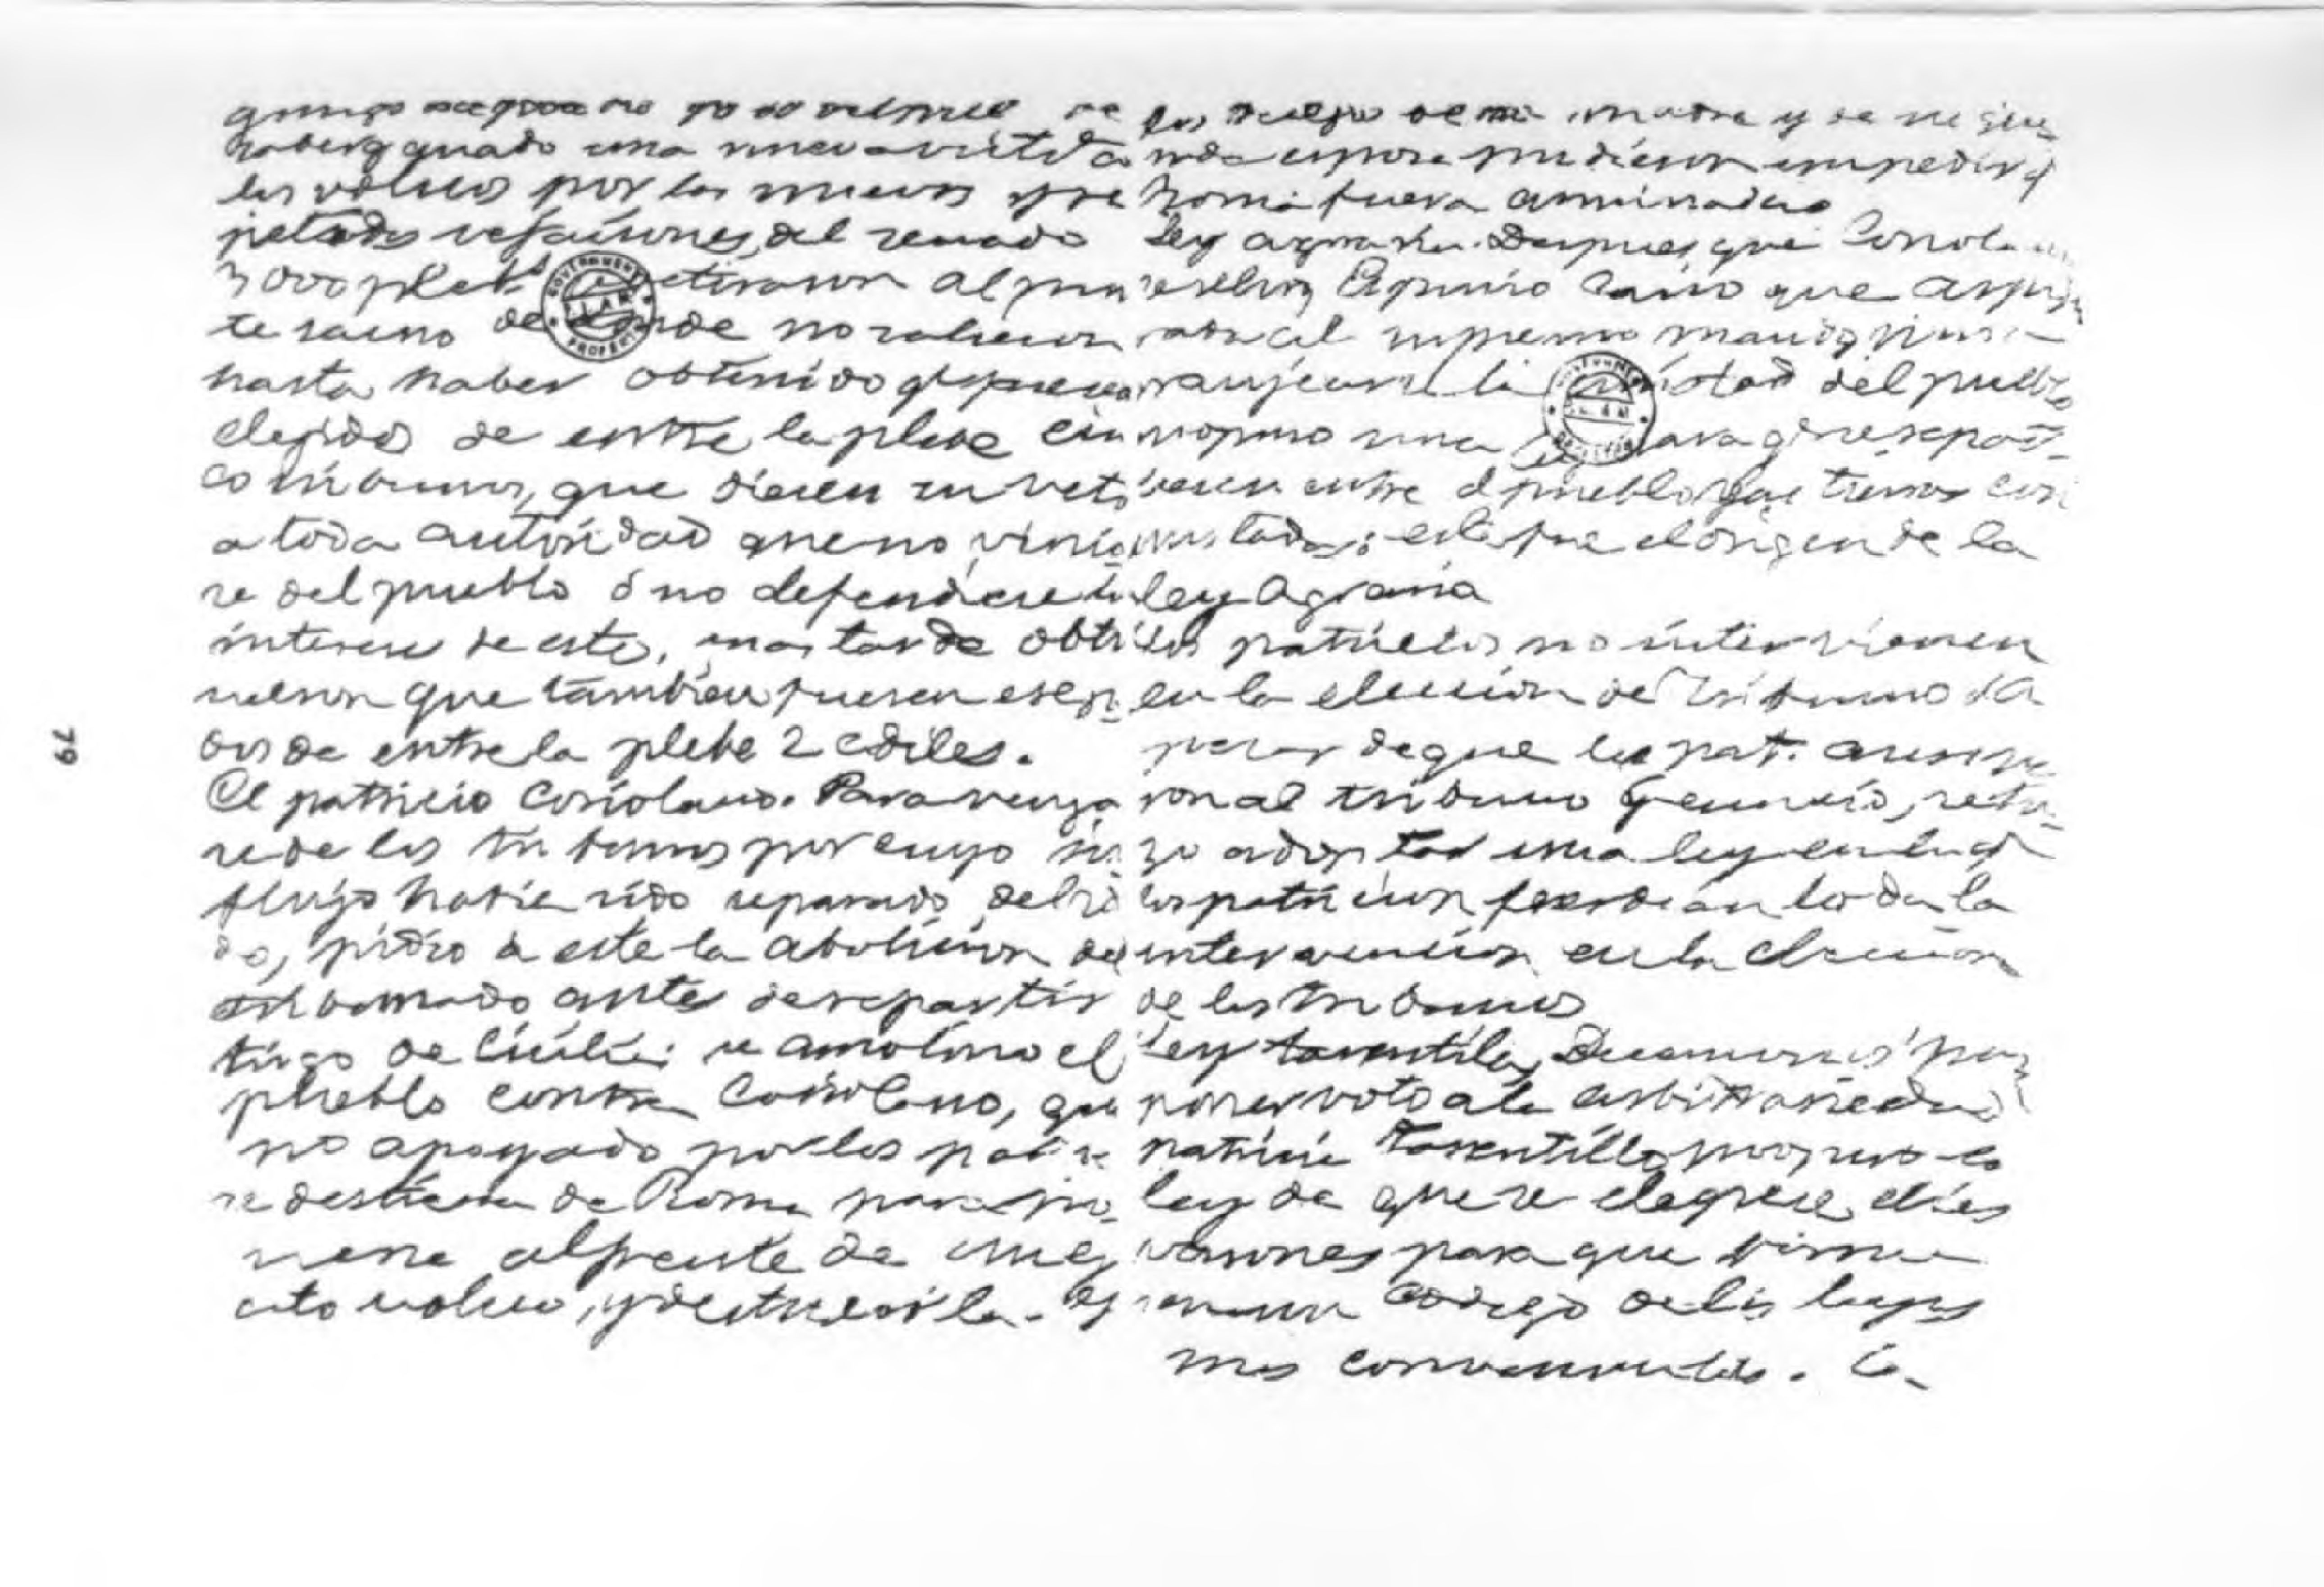 haber ganado una nueva victoria
los volscos por los nuevos y re
petidas vejaciones, del senado
3000 pleb retiraron al mon
te sacro de donde no salieron
hasta haber obtenido q fuesen
elegidos de entre la plebe cin
co tribunos, que diesen su veto
a toda autoridad que no vinie
se del pueblo ó no defendiere los
intereses de este, mas tarde obtu
vieron que tambien fuesen elegi
dos de entre la plebe 2 ediles.
El patricio Coriolano. Para venga
se de los tribunos por cuyo in
flujo habia sido separado del
do, pidio a este la abolicion del
tribunado antes de repartir
trigo de Sicilia: se amotino el
pueblo contra Coriolano, que
no apoyado por los patri
se destierra de Roma para po
nerse al frente de un ej
cito volsco, y destruirla.
los ruegos de su madre y de su
esposa pudieron impedir q
Roma fuera arruinada
Ley agraria. Despues que Coriolano
Espurio Casio que aspi
al supremo mando, para
granjearse la amistad del pueblo
propuso una ley para que se repar
tiesen entre el pueblo las tierras con
quistadas: este fue el origen de la
ley Agraria
Los patricios no intervienen
en la eleccion de Tribunos A
pesar de que los pat. asesina
ron al tribuno Genucio, se hi
zo adoptar una ley en la q
los patricios perdian toda la
intervencion en la eleccion
de los tribunos
Ley Tarentila, Decenviros para
poner veto a la arbitrariedad
patricia Tarentillo propuso la
ley de que se eligiese diez
varones para que forma
ran un codigo de las leyes
mas convenientes. La
79